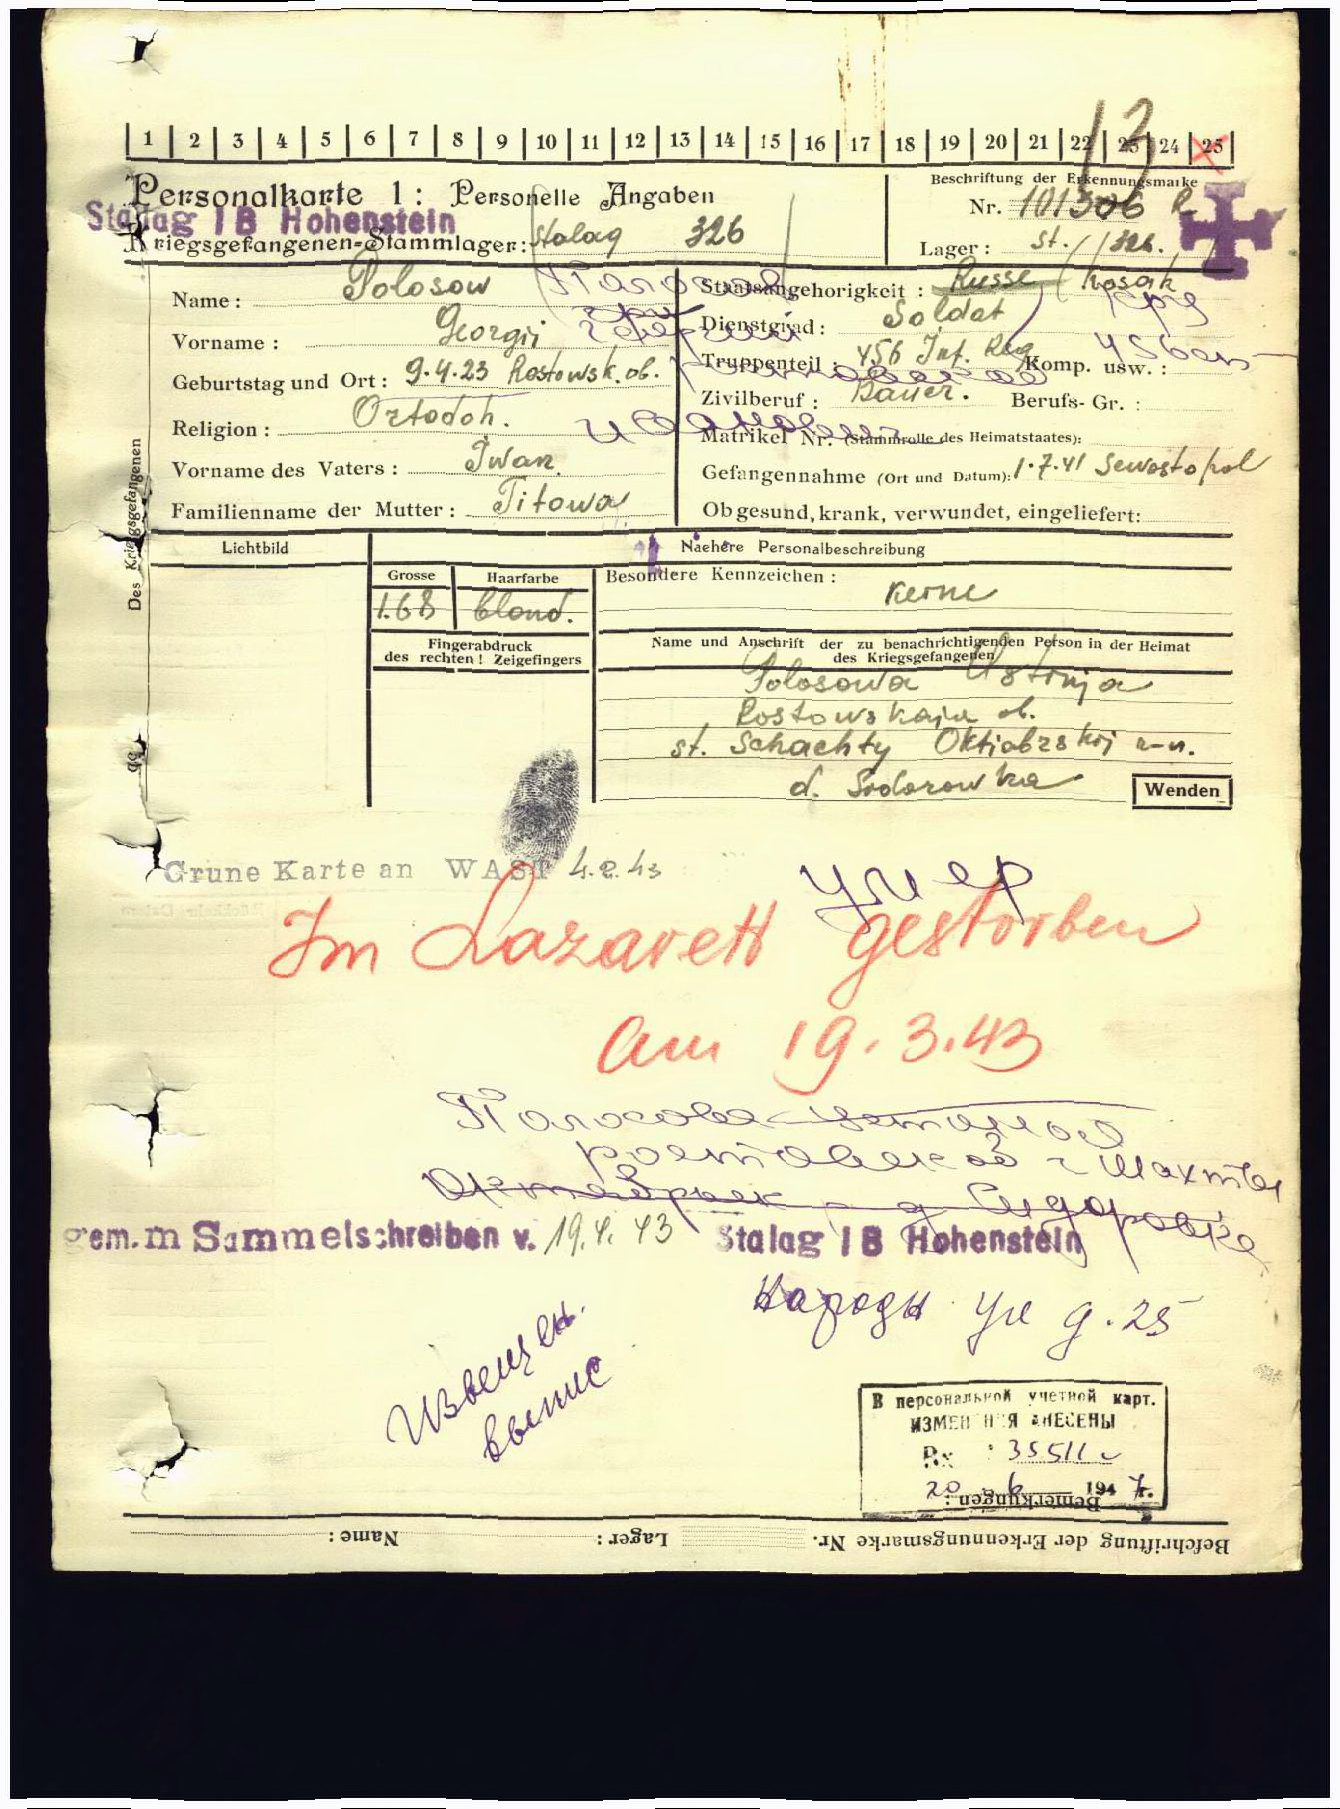 1 2 3 4 5 6 7 8 9 10 11 12 13 14 15 16 17 18 19 20 21 22 23 24 25
13
Personalkarte 1: Personelle Angaben
Beschriftung der Erkennungsmarke
Nr. 101306 R
Stalag I B Hohenstein
Kriegsgefangenen-Stammlager: Stalag 326
Lager: St. 326.
Name: Polosow Полосов
Staatsangehörigkeit: Russe / Kosak
Vorname: Georgij Георгий
Dienstgrad: Soldat
Geburtstag und Ort: 9.4.23 Rostowsk. ob.
Truppenteil: 456 Inf. Reg Komp. usw.:
Zivilberuf: Bauer. Berufs-Gr.:
Religion: Ortodoh. Иванович
Matrikel Nr. (Stammrolle des Heimatstaates):
Vorname des Vaters: Iwan
Gefangennahme (Ort und Datum): 1.7.41 Sewostopol
Familienname der Mutter: Titowa
Ob gesund, krank, verwundet, eingeliefert:
Des Kriegsgefangenen
Lichtbild
Naehere Personalbeschreibung
Grosse Haarfarbe
Besondere Kennzeichen: Keine
1.68 blond.
Fingerabdruck
des rechten! Zeigefingers
Name und Anschrift der zu benachrichtigenden Person in der Heimat
des Kriegsgefangenen
Polosowa Ustinja
Rostowskaja ob.
st. Schachty Oktiabrskoj r-n.
d. Sidorowka
Wenden
Grune Karte an WAST 4.2.43
умер
Im Lazarett gestorben
am 19.3.43
Полосова
ростовской г Шахты
д Сидоровка
gem. m Sammelschreiben v. 19.4.43 Stalag I B Hohenstein
ул д. 25
Извещен.
выпис
В персональной учетной карт.
ИЗМЕНЕНИЯ ВНЕСЕНЫ
Вх 35511
20 6 1947г.
Bemerkungen:
Beschriftung der Erkennungsmarke Nr. Lager: Name: